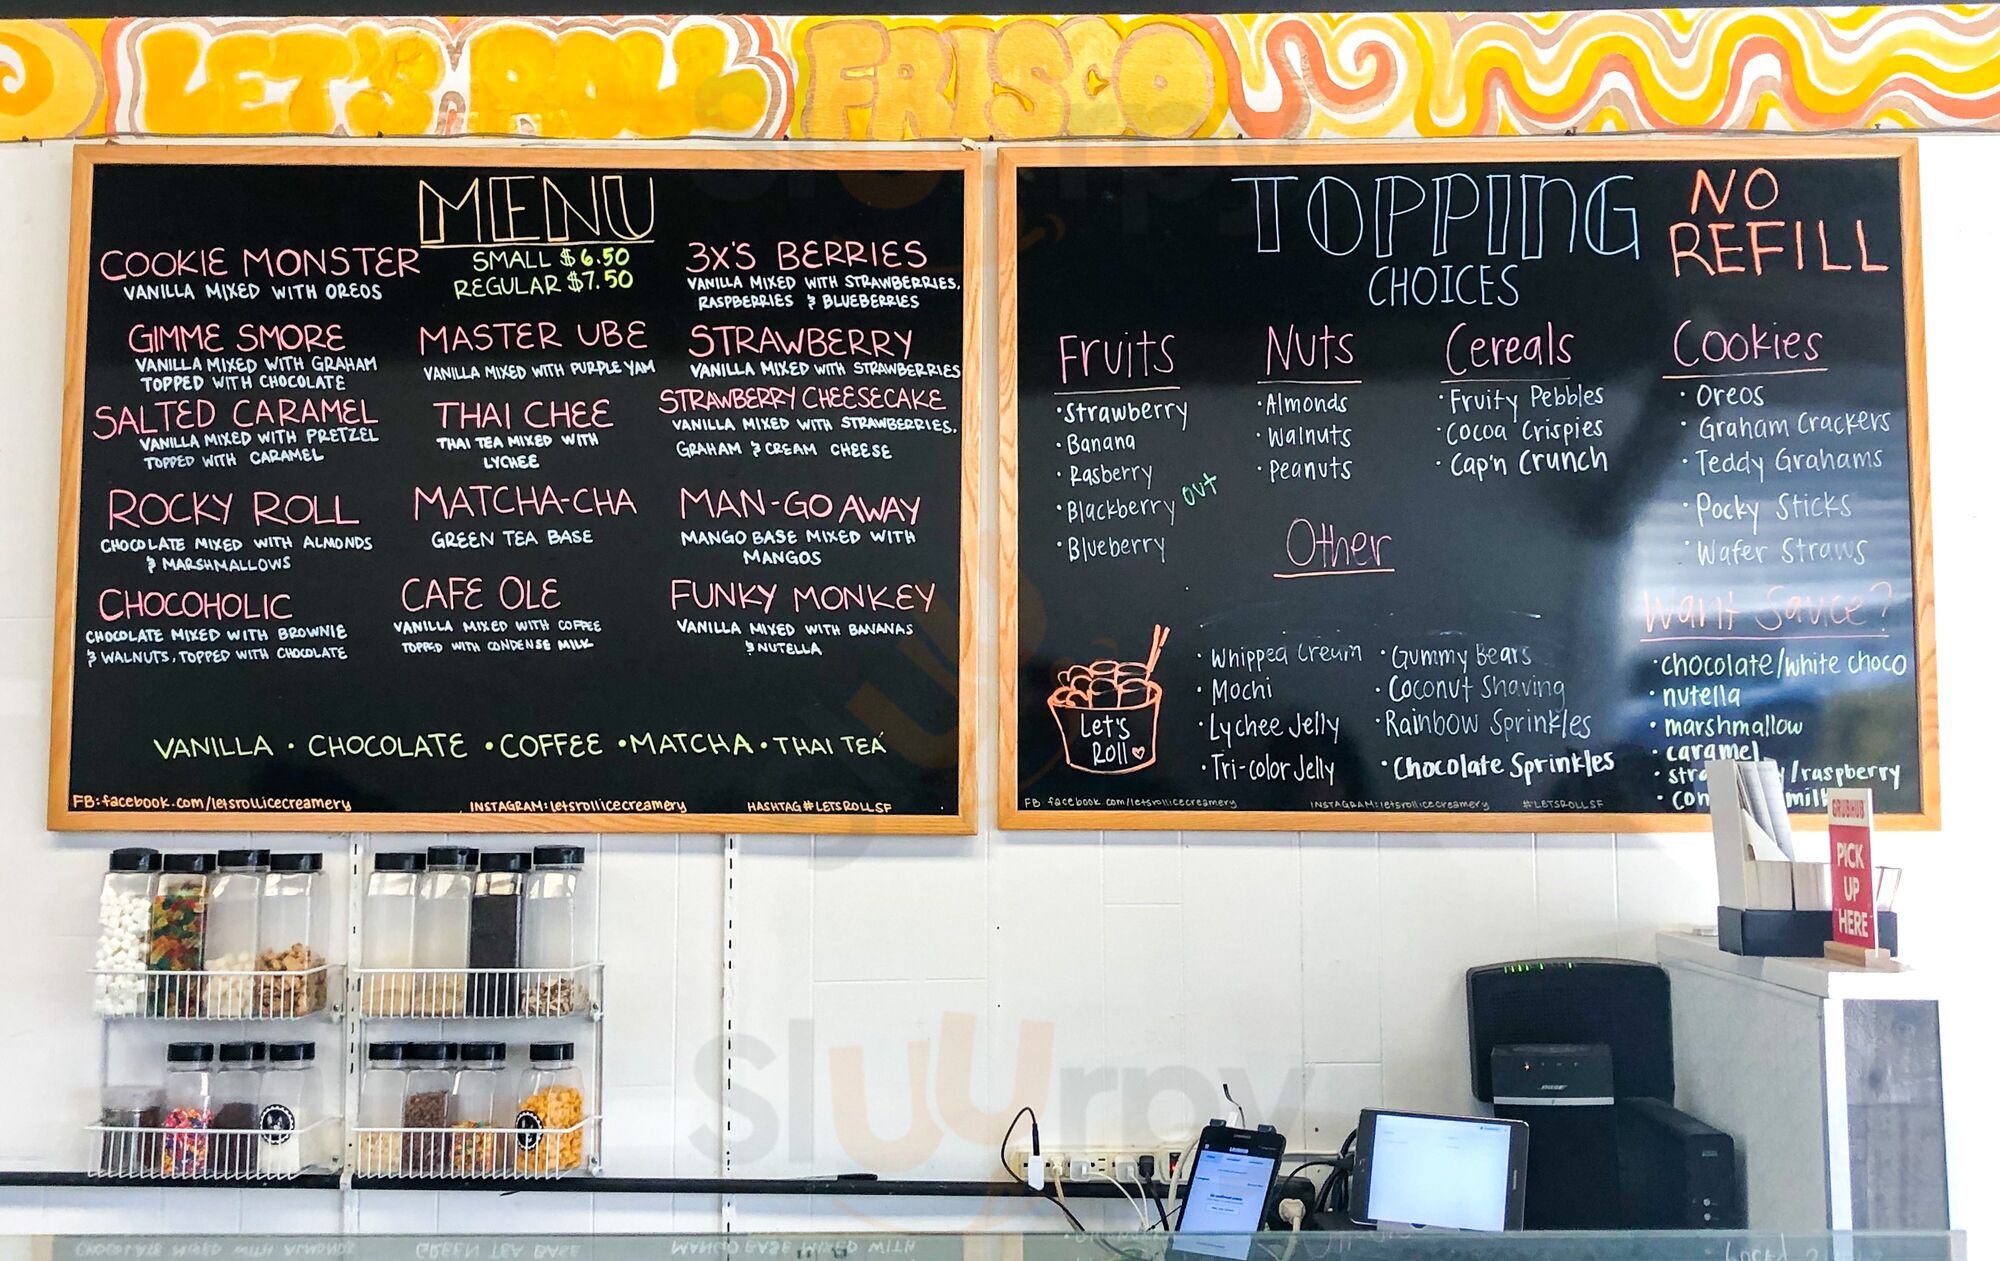 LET'S ROLL FRISCO
MENU
SMALL $6.50
REGULAR $7.50
COOKIE MONSTER
VANILLA MIXED WITH OREOS
GIMME SMORE
VANILLA MIXED WITH GRAHAM
TOPPED WITH CHOCOLATE
SALTED CARAMEL
VANILLA MIXED WITH PRETZEL
TOPPED WITH CARAMEL
ROCKY ROLL
CHOCOLATE MIXED WITH ALMONDS
& MARSHMALLOWS
CHOCOHOLIC
CHOCOLATE MIXED WITH BROWNIE
& WALNUTS, TOPPED WITH CHOCOLATE
MASTER UBE
VANILLA MIXED WITH PURPLE YAM
THAI CHEE
THAI TEA MIXED WITH
LYCHEE
MATCHA-CHA
GREEN TEA BASE
CAFE OLE
VANILLA MIXED WITH COFFEE
TOPPED WITH CONDENSE MILK
3X'S BERRIES
VANILLA MIXED WITH STRAWBERRIES,
RASPBERRIES & BLUEBERRIES
STRAWBERRY
VANILLA MIXED WITH STRAWBERRIES
STRAWBERRY CHEESECAKE
VANILLA MIXED WITH STRAWBERRIES,
GRAHAM & CREAM CHEESE
MAN-GO AWAY
MANGO BASE MIXED WITH
MANGOS
FUNKY MONKEY
VANILLA MIXED WITH BANANAS
& NUTELLA
VANILLA • CHOCOLATE • COFFEE • MATCHA • THAI TEA
FB: facebook.com/letsrollicecreamery INSTAGRAM: letsrollicecreamery HASHTAG #LETSROLLSF
TOPPING
CHOICES
NO
REFILL
Fruits
• Strawberry
• Banana
• Rasberry
• Blackberry OUT
• Blueberry
Nuts
• Almonds
• Walnuts
• Peanuts
Cereals
• Fruity Pebbles
• Cocoa Crispies
• Cap'n Crunch
Cookies
• Oreos
• Graham Crackers
• Teddy Grahams
• Pocky Sticks
• Wafer Straws
Other
• Whipped Cream
• Mochi
• Lychee Jelly
• Tri-color Jelly
• Gummy Bears
• Coconut Shaving
• Rainbow Sprinkles
• Chocolate Sprinkles
Want Sauce?
• chocolate/white choco
• nutella
• marshmallow
• caramel
/raspberry
Let's
Roll
FB: facebook.com/letsrollicecreamery INSTAGRAM: letsrollicecreamery #LETSROLLSF
GRUBHUB
PICK
UP
HERE
BOSE
SAMSUNG
Sluurpy
CHOCOLATE MIXED WITH ALMONDS
GREEN TEA BASE
MANGO BASE MIXED WITH